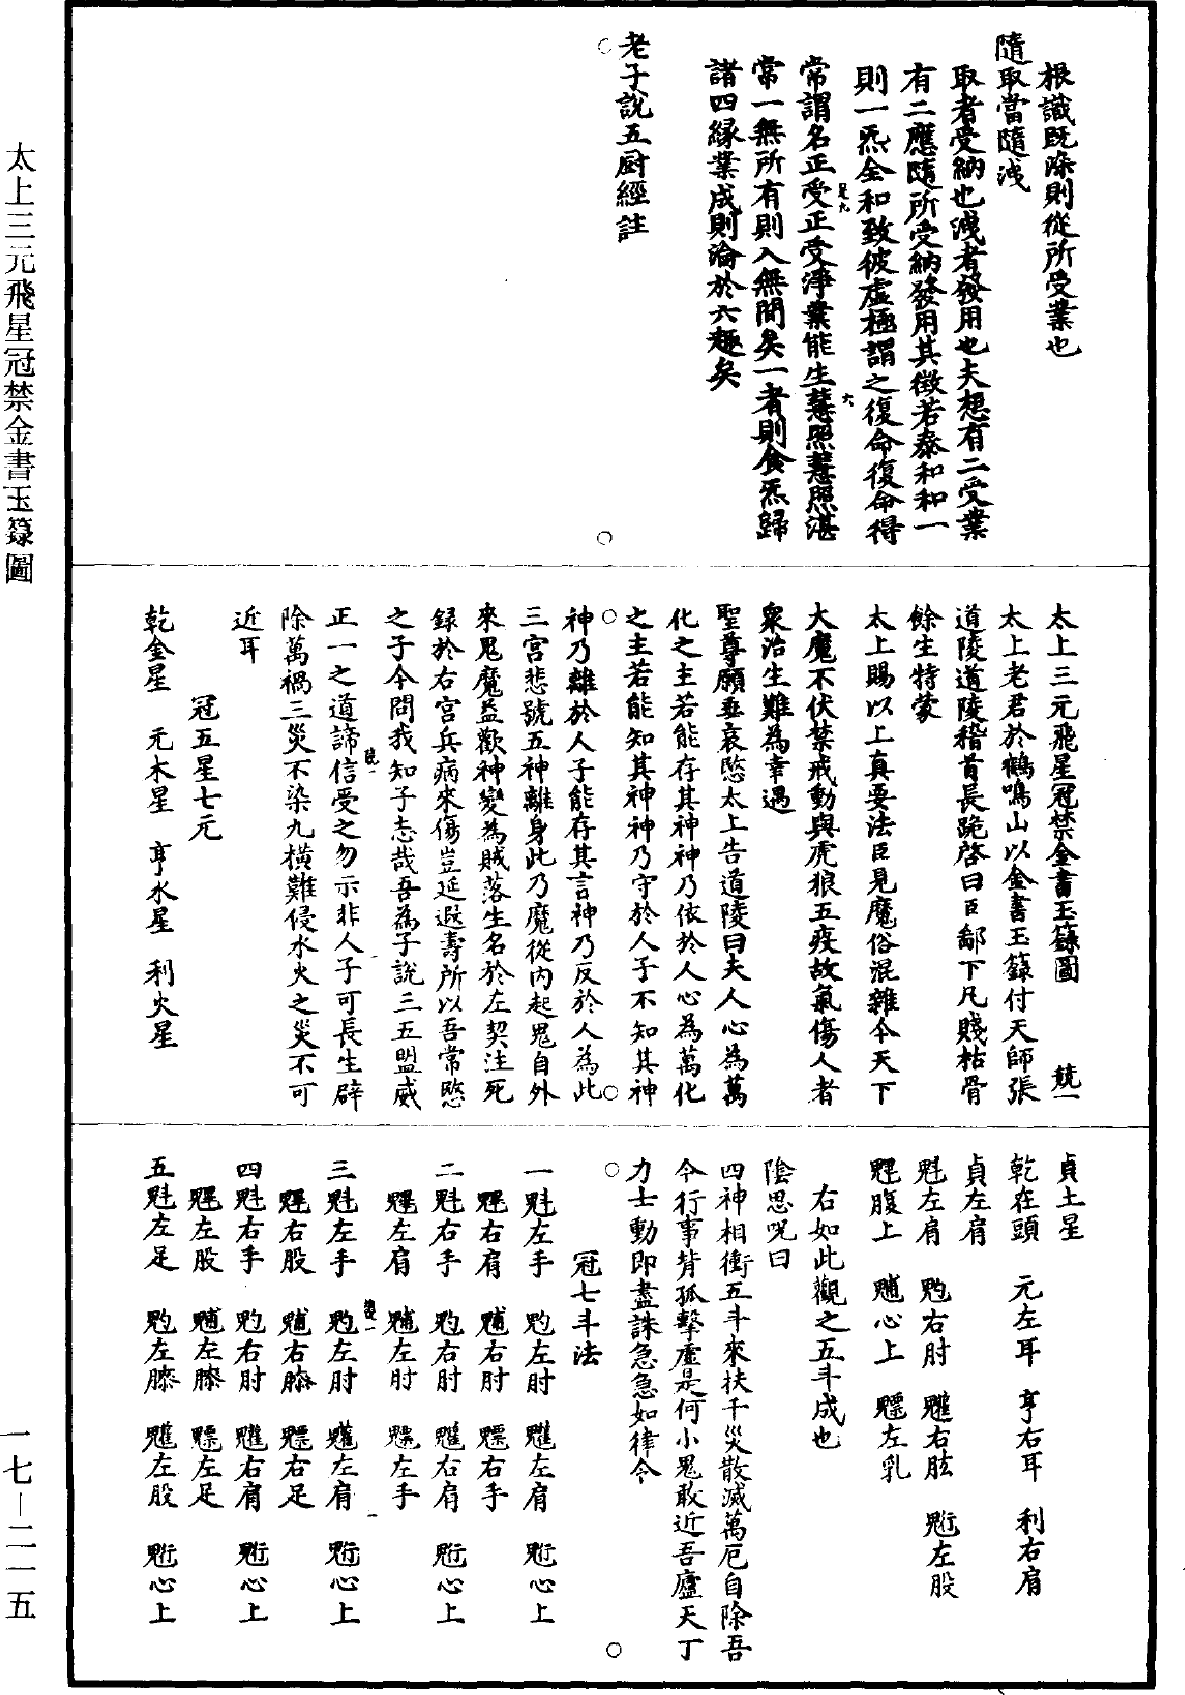 根識既除則從所受業也
隨取當隨洩
取者受納也洩者發用也夫想有二受業
有二應隨所受納發用其徵若泰和和一
則一炁全和致彼虛極謂之復命復命得
常謂名正受正受淨業能生慧照慧照湛
常一無所有則入無間矣一者則食炁歸
諸四緣業成則淪於六趣矣
老子說五厨經註
太上三元飛星冠禁金書玉籙圖 兢一
太上老君於鶴鳴山以金書玉籙付天師張
道陵道陵稽首長跪啓曰臣鄙下凡賤枯骨
餘生特蒙
太上賜以上真要法臣見魔俗混雜今天下
大魔不伏禁戒動與虎狼五疫故氣傷人者
衆治生難為幸遇
聖尊願垂哀愍太上告道陵曰夫人心為萬
化之主若能存其神神乃依於人心為萬化
之主若能知其神神乃守於人子不知其神
神乃離於人子能存其言神乃反於人為此
三宮悲號五神離身此乃魔從內起鬼自外
來鬼魔益歡神變為賊落生名於左契注死
録於右宮兵病來傷豈延遐壽所以吾常愍
之子今問我知子志哉吾為子說三五盟威
正一之道諦信受之勿示非人子可長生辟
除萬禍三災不染九橫難侵水火之災不可
近耳
冠五星七元
乾金星 元木星 亨水星 利火星
貞土星
乾在頭 元左耳 亨右耳 利右肩
貞左肩
魁左肩 𩲃右肘 𩵄右胘 䰢左股
魓腹上 𩳐心上 魒左乳
右如此觀之五斗成也
陰思呪曰
四神相衝五斗來扶千災散滅萬厄自除吾
今行事背孤擊虛是何小鬼敢近吾廬天丁
力士動即盡誅急急如律令
冠七斗法
一魁左手 𩲃左肘 𩵄左肩 䰢心上
魓右肩 𩳐右肘 魒右手
二魁右手 𩲃右肘 𩵄右肩 䰢心上
魓左肩 𩳐左肘 魒左手
三魁左手 𩲃左肘 𩵄左肩 䰢心上
魓右股 𩳐右膝 魒右足
四魁右手 𩲃右肘 𩵄右肩 䰢心上
魓左股 𩳐左膝 魒左足
五魁左足 𩲃左膝 𩵄左股 䰢心上
太上三元飛星冠禁金書玉籙圖
一七—二一五